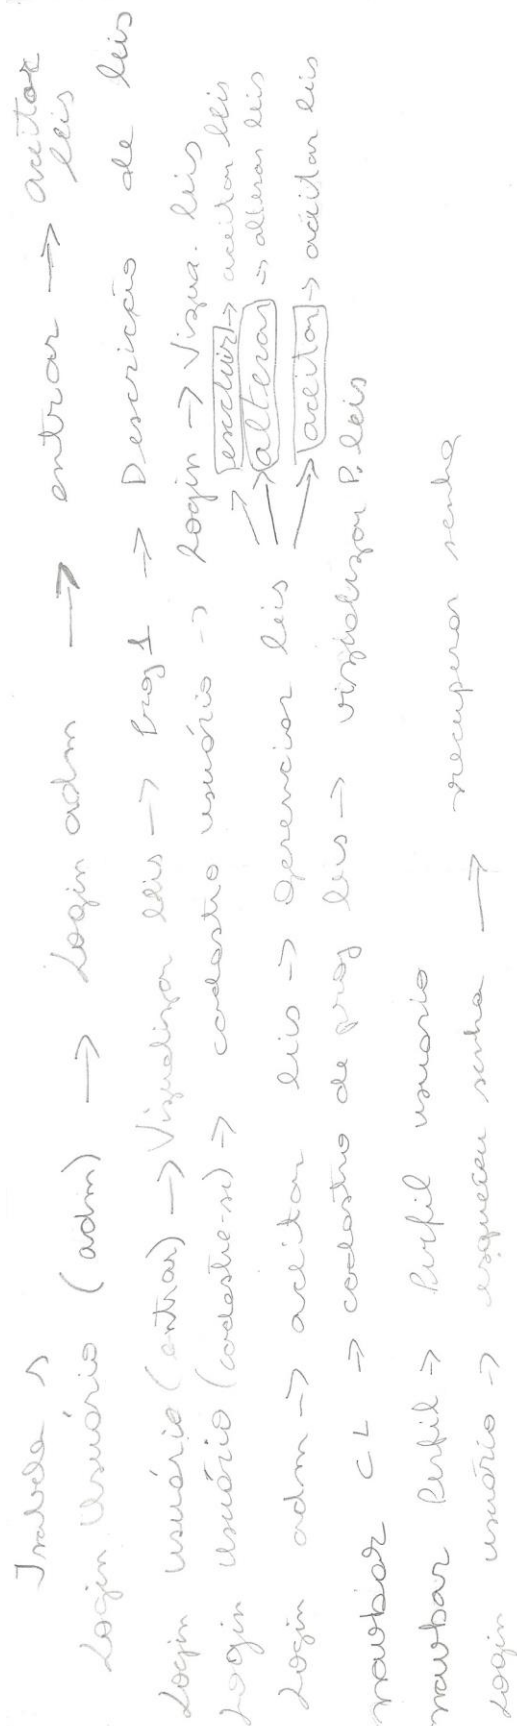 Isabela S
Login Usuário (adm) → Login adm → entrar → aceitar leis
Login usuário (entrar) → Vizualizar leis → Prog 1 → Descrição de leis
Login Usuário (cadastre-se) → cadastro usuário → Login → Vizua. leis
Login adm → aceitar leis → Gerenciar leis → excluir → aceitar leis
→ alterar → alterar leis
→ aceitar → aceitar leis
navbar CL → cadastro de proj leis → vizualizar P. leis
navbar Perfil → Perfil usuario
Login usuário → esqueceu senha → recuperar senha